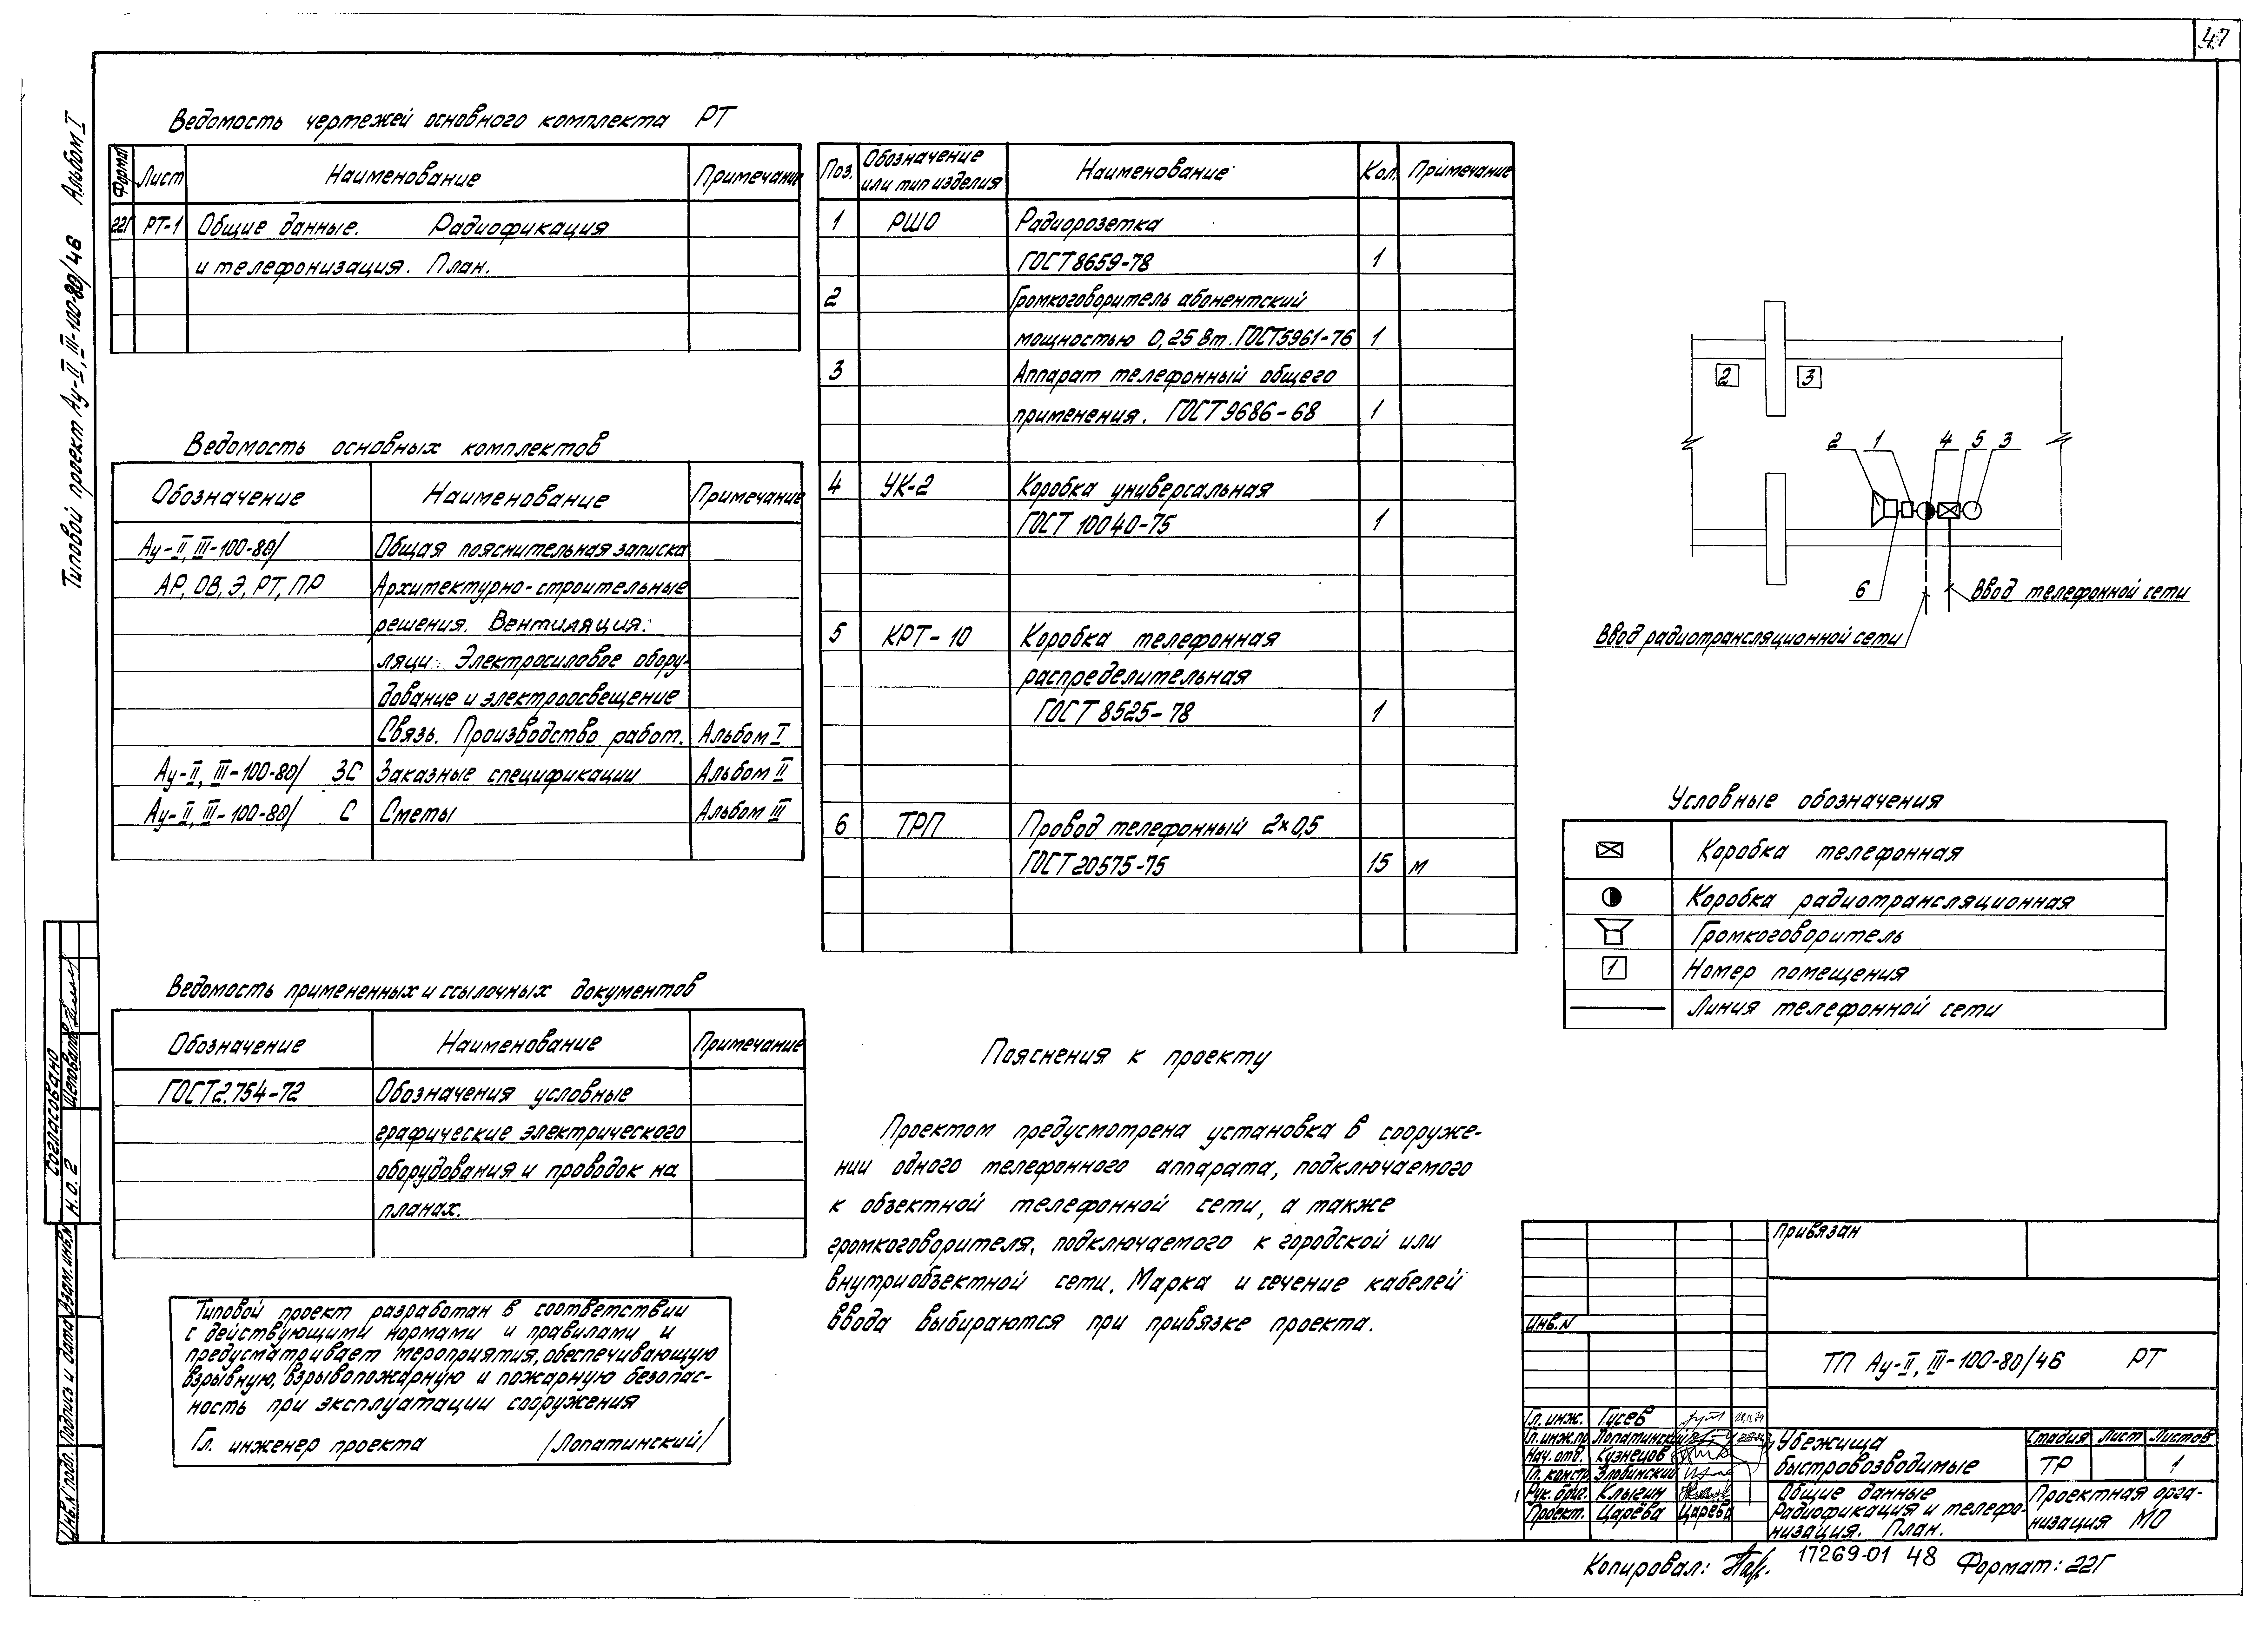 47
Типовой проект Ау-II, III-100-80/46 Альбом I
Ведомость чертежей основного комплекта РТ
Формат Лист Наименование Примечание
22Г РТ-1 Общие данные. Радиофикация
и телефонизация. План.
Ведомость основных комплектов
Обозначение Наименование Примечание
Ау-II, III-100-80/ Общая пояснительная записка
АР, ОВ, Э, РТ, ПР Архитектурно-строительные
решения. Вентиляция.
ляци. Электросиловое обору-
дование и электроосвещение
Связь. Производство работ. Альбом I
Ау-II, III-100-80/ ЗС Заказные спецификации Альбом II
Ау-II, III-100-80/ С Сметы Альбом III
Ведомость примененных и ссылочных документов
Обозначение Наименование Примечание
ГОСТ 2.754-72 Обозначения условные
графические электрического
оборудования и проводок на
планах.
Типовой проект разработан в соответствии
с действующими нормами и правилами и
предусматривает мероприятия, обеспечивающую
взрывную, взрывопожарную и пожарную безопас-
ность при эксплуатации сооружения
Гл. инженер проекта /Лопатинский/
Поз. Обозначение или тип изделия Наименование Кол. Примечание
1 РШО Радиорозетка
ГОСТ 8659-78 1
2 Громкоговоритель абонентский
мощностью 0,25 Вт. ГОСТ 5961-76 1
3 Аппарат телефонный общего
применения. ГОСТ 9686-68 1
4 УК-2 Коробка универсальная
ГОСТ 10040-75 1
5 КРТ-10 Коробка телефонная
распределительная
ГОСТ 8525-78 1
6 ТРП Провод телефонный 2×0,5
ГОСТ 20575-75 15 м
Пояснения к проекту
Проектом предусмотрена установка в сооруже-
нии одного телефонного аппарата, подключаемого
к объектной телефонной сети, а также
громкоговорителя, подключаемого к городской или
внутриобъектной сети. Марка и сечение кабелей
ввода выбираются при привязке проекта.
2 3
2 1 4 5 3
6
Ввод телефонной сети
Ввод радиотрансляционной сети
Условные обозначения
Коробка телефонная
Коробка радиотрансляционная
Громкоговоритель
1 Номер помещения
Линия телефонной сети
Привязан
Инв.N
ТП Ау-II, III-100-80/46 РТ
Гл. инж. Гусев
Гл. инж. пр. Лопатинский
Нач. отд. Кузнецов
Гл. констр. Злобинский
Рук. бриг. Клыгин
Проект. Царёва Царёва
Убежища
быстровозводимые
Стадия Лист Листов
ТР 1
Общие данные
Радиофикация и телефо-
низация. План.
Проектная орга-
низация МО
Копировал: 17269-01 48 Формат: 22Г
Согласовано
Н.О.2 Щеповалов
Инв.N подл. Подпись и дата Взам.инв.N